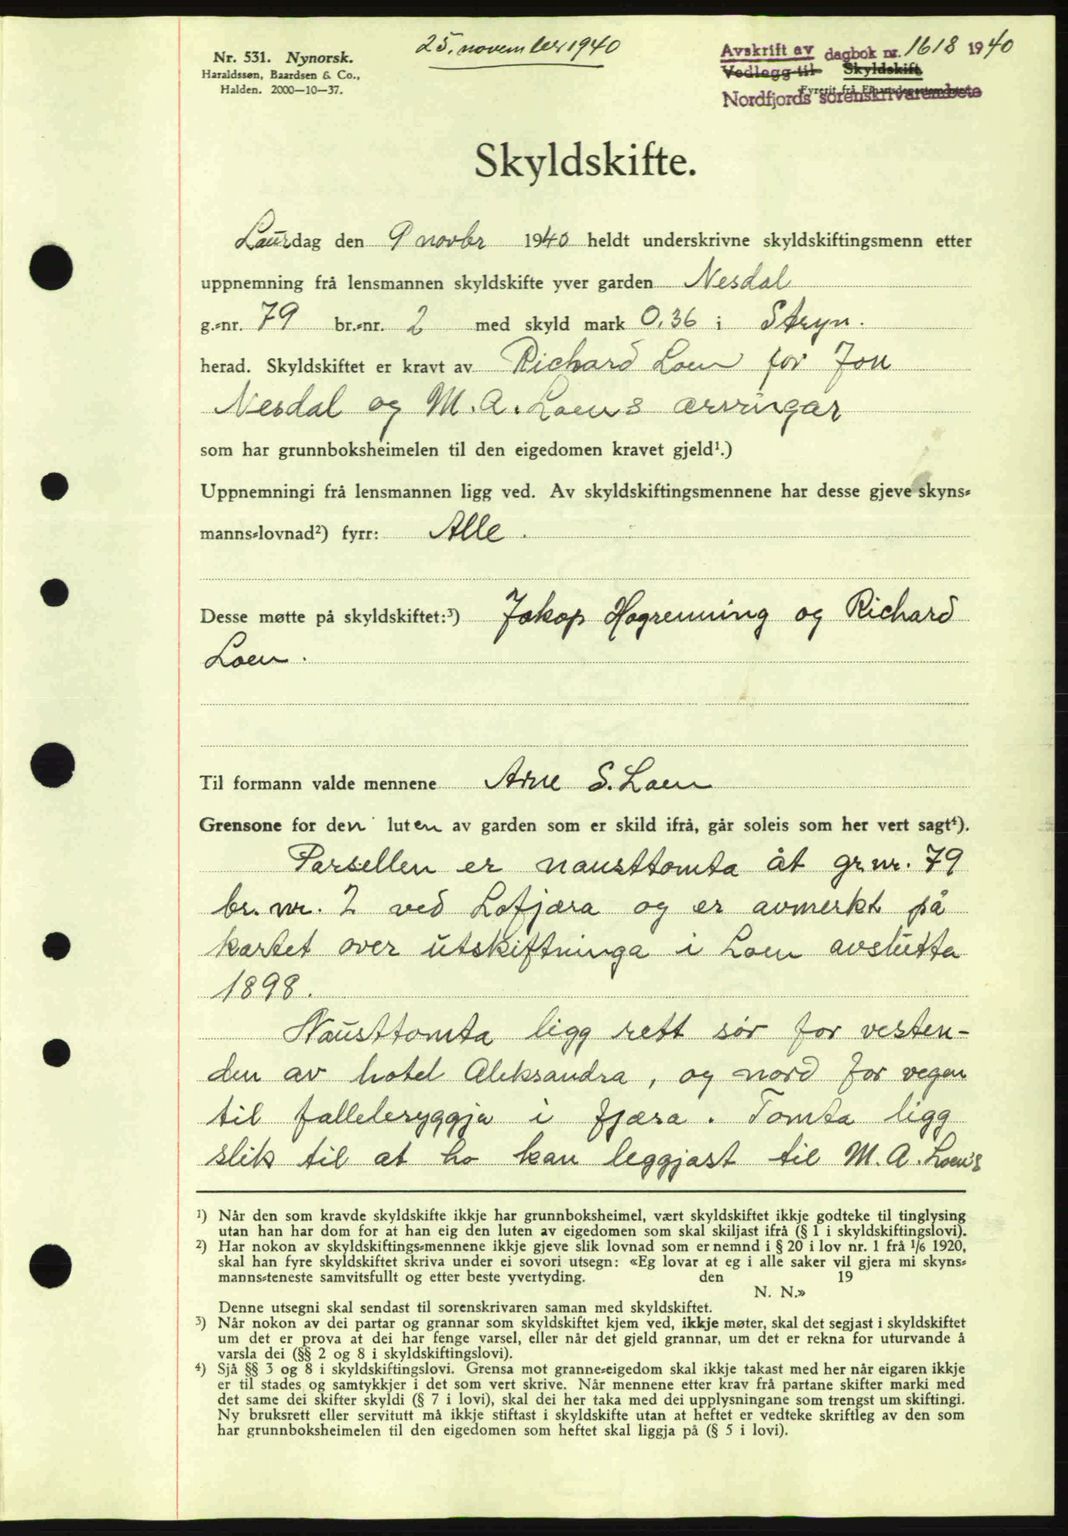 Nr. 531. Nynorsk.
Haraldssen, Baardsen & Co.,
Halden. 2000—10—37.
25. november 1940
Avskrift av dagbok nr. 1618 1940
Vedlegg til Skyldskift
Nordfjords sorenskrivarembete
Skyldskifte.
Laurdag den 9 novbr 1940 heldt underskrivne skyldskiftingsmenn etter
uppnemning frå lensmannen skyldskifte yver garden Nesdal
g.-nr. 79 br.-nr. 2 med skyld mark 0,36 i Stryn.
herad. Skyldskiftet er kravt av Richard Loen for Jon
Nesdal og M. A. Loens ervingar
som har grunnboksheimelen til den eigedomen kravet gjeld¹.)
Uppnemningi frå lensmannen ligg ved. Av skyldskiftingsmennene har desse gjeve skyns-
manns-lovnad²) fyrr: Alle.
Desse møtte på skyldskiftet:³) Jakop Hogrenning og Richard
Loen.
Til formann valde mennene Arne S. Loen
Grensone for den luten av garden som er skild ifrå, går soleis som her vert sagt⁴).
Parsellen er nausttomta åt gr. nr. 79
br. nr. 2 ved Lofjæra og er avmerkt på
kartet over utskiftninga i Loen avslutta
1898.
Nausttomta ligg rett sør for vesten-
den av hotel Aleksandra, og nord for vegen
til fallebryggja i fjæra. Tomta ligg
slik til at ho kan leggjast til M. A. Loen's
¹) Når den som kravde skyldskifte ikkje har grunnboksheimel, vært skyldskiftet ikkje godteke til tinglysing
utan han har dom for at han eig den luten av eigedomen som skal skiljast ifrå (§ 1 i skyldskiftingslovi).
²) Har nokon av skyldskiftings-mennene ikkje gjeve slik lovnad som er nemnd i § 20 i lov nr. 1 frå 1/6 1920,
skal han fyre skyldskiftet skriva under ei sovori utsegn: «Eg lovar at eg i alle saker vil gjera mi skyns-
manns-teneste samvitsfullt og etter beste yvertyding. den 19
N. N.»
Denne utsegni skal sendast til sorenskrivaren saman med skyldskiftet.
³) Når nokon av dei partar og grannar som skyldskiftet kjem ved, ikkje møter, skal det segjast i skyldskiftet
um det er prova at dei har fenge varsel, eller når det gjeld grannar, um det er rekna for uturvande å
varsla dei (§§ 2 og 8 i skyldskiftingslovi).
⁴) Sjå §§ 3 og 8 i skyldskiftingslovi. Grensa mot granne-eigedom skal ikkje takast med her når eigaren ikkje
er til stades og samtykkjer i det som vert skrive. Når mennene etter krav frå partane skifter marki med
det same dei skifter skyldi (§ 7 i lovi), skal dei her taka med dei upplysningane som trengst um skiftingi.
Ny bruksrett eller servitutt må ikkje stiftast i skyldskifte utan at heftet er vedteke skriftleg av den som
har grunnboksheimelen til den eigedomen som heftet skal liggja på (§ 5 i lovi).